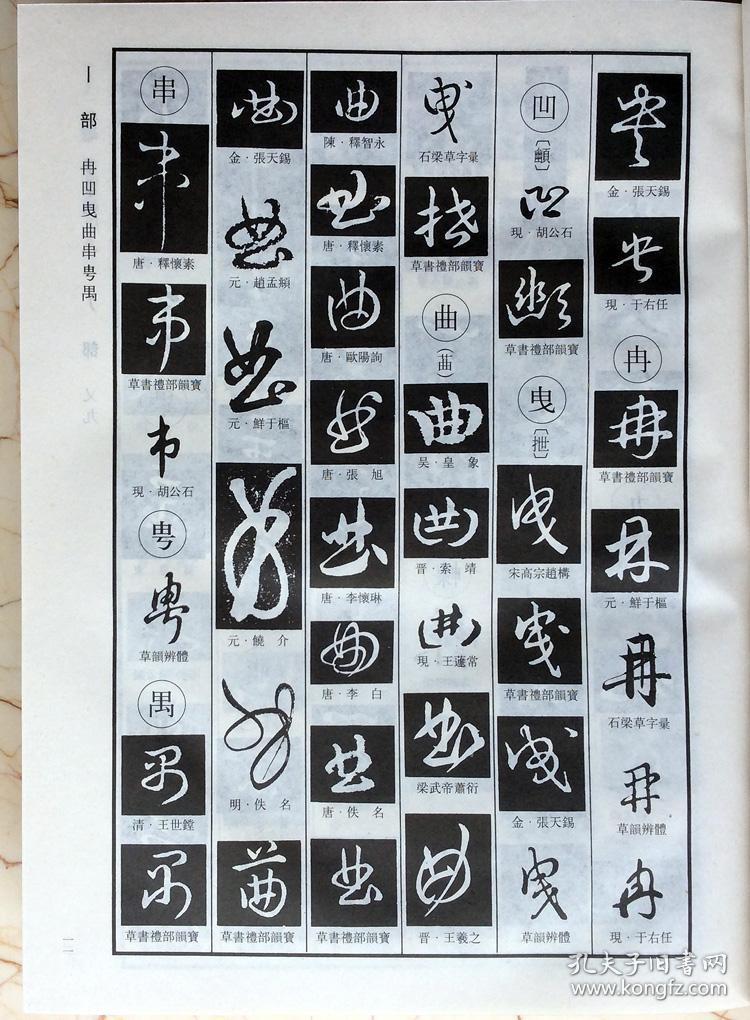 丨部 冉凹曳曲串甹禺
金·張天錫
現·于右任
冉
草書禮部韻寶
元·鮮于樞
石梁草字彙
草韻辨體
現·于右任
凹
〔䫜〕
現·胡公石
草書禮部韻寶
曳
〔抴〕
宋高宗趙構
草書禮部韻寶
金·張天錫
草韻辨體
曳
石梁草字彙
草書禮部韻寶
曲
吴·皇象
晋·索靖
現·王蘧常
梁武帝蕭衍
晋·王羲之
曲
陳·釋智永
唐·釋懷素
唐·歐陽詢
唐·張旭
唐·李懷琳
唐·李白
唐·佚名
草書禮部韻寶
金·張天錫
元·趙孟頫
元·鮮于樞
元·饒介
明·佚名
草書禮部韻寶
串
唐·釋懷素
草書禮部韻寶
現·胡公石
甹
草韻辨體
禺
清·王世鏜
草書禮部韻寶
一一
孔夫子旧书网
www.kongfz.com